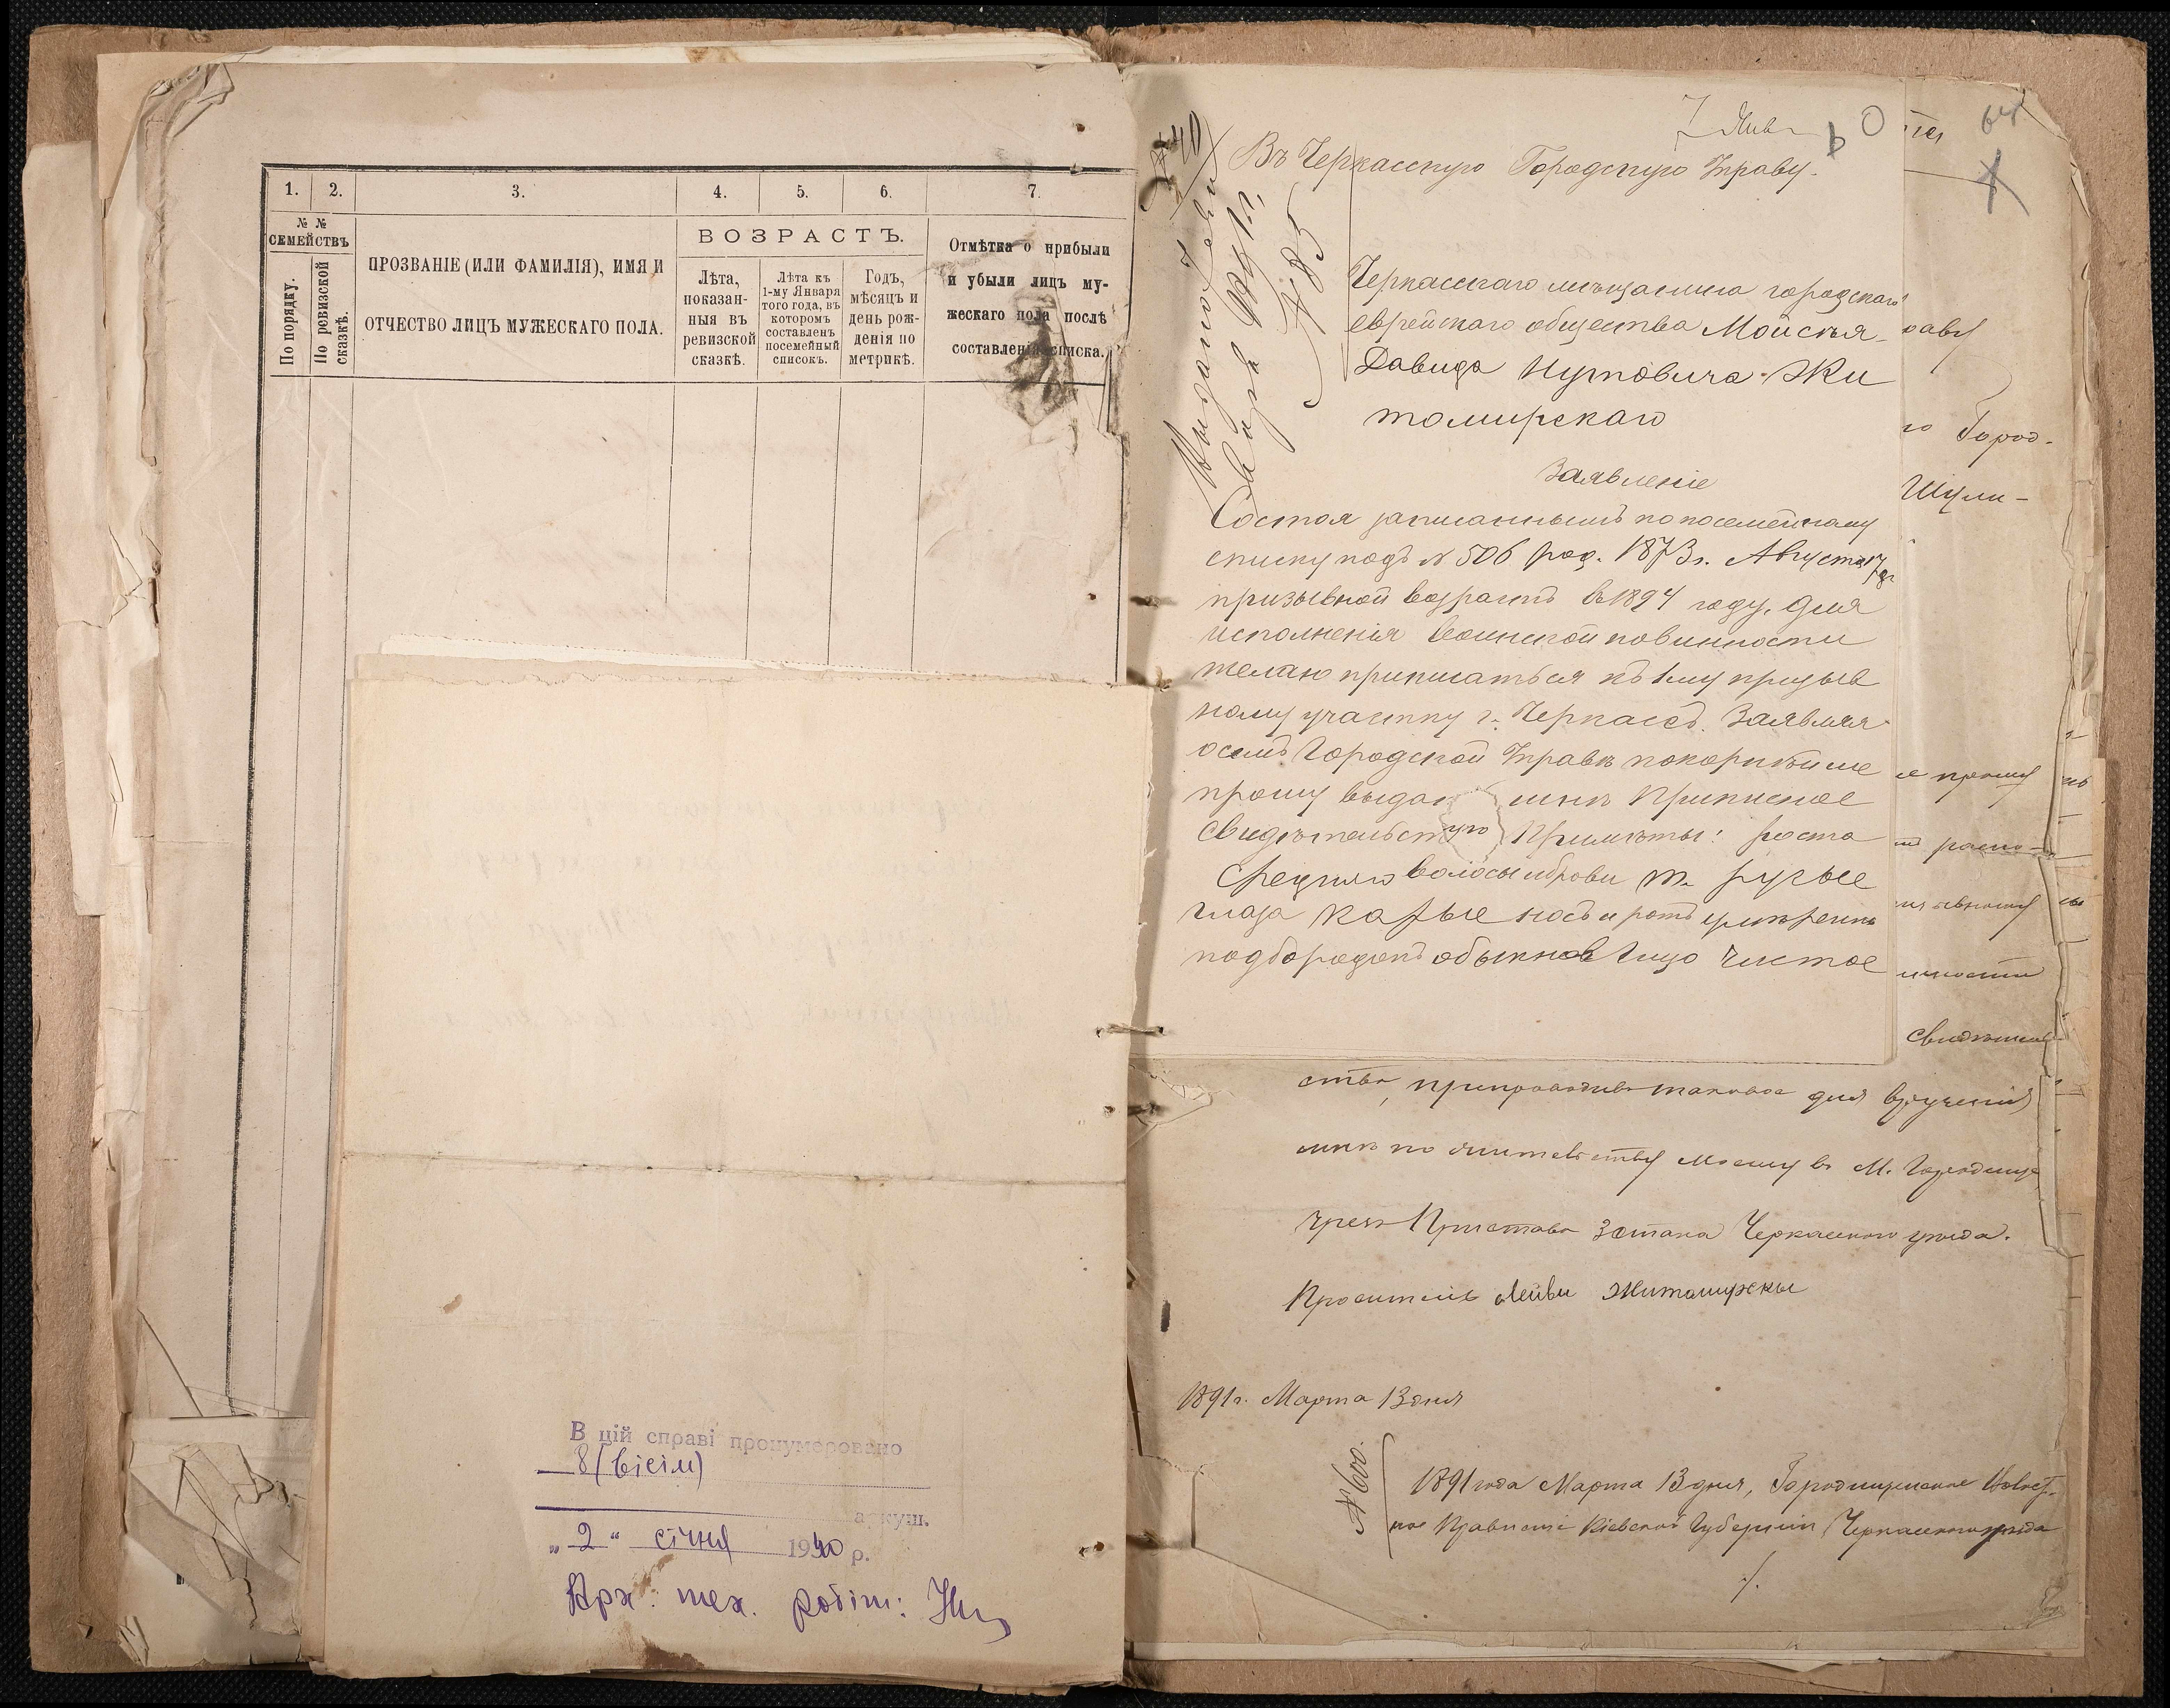 1. 2. 3. 4. 5. 6. 7.
№ №
СЕМЕЙСТВЪ
По порядку.
По ревизской сказкѣ.
ПРОЗВАНІЕ (ИЛИ ФАМИЛІЯ), ИМЯ И
ОТЧЕСТВО ЛИЦЪ МУЖЕСКАГО ПОЛА.
ВОЗРАСТЪ.
Лѣта,
показан-
ныя въ
ревизской
сказкѣ.
Лѣта къ
1-му Января
того года, въ
которомъ
составленъ
посемейный
списокъ.
Годъ,
мѣсяцъ и
день рож-
денія по
метрикѣ.
Отмѣтка о прибыли
и убыли лицъ му-
жескаго пола послѣ
составленія списка.
В цій справі пронумеровано
8 (вісім)
аркуш.
„2“ січня 1940 р.
Арх. тех. робіт:
7 Янв
64
Въ Черкасскую Городскую Управу.
№ 85
Черкасскаго мѣщанина городскаго
еврейскаго общества Мойсѣя-
Давида Нутовича Жи
томирскаго
Заявленіе
Состоя записаннымъ по посемейному
списку подъ № 506 род. 1873 г. Августа 17
призывной возрастъ въ 1894 году, для
исполненія воинской повинности
желаю приписаться къ 1му призыв
ному участку г. Черкассъ. Заявляя
о семъ Городской Управѣ покорнѣйше
прошу выдать мнѣ приписное
свидѣтельство Примѣты: роста
средняго волосы и брови т. русые
глаза карые носъ и ротъ умѣрены
подбородокъ обыкнов лицо чистое
раву
го Город-
Шули-
е прошу
свидѣтель
ство, препроводивъ таковое для врученія
мнѣ по жительству моему въ М. Городище
чрезъ Пристава 3 стана Черкасскаго уѣзда.
Проситель Лейви Житомирскы
1891 г. Марта 13 дня
№ 600.
1891 года Марта 13 дня, Городищенское Волост-
ное Правленіе Кіевской Губерніи Черкасскаго уѣзда